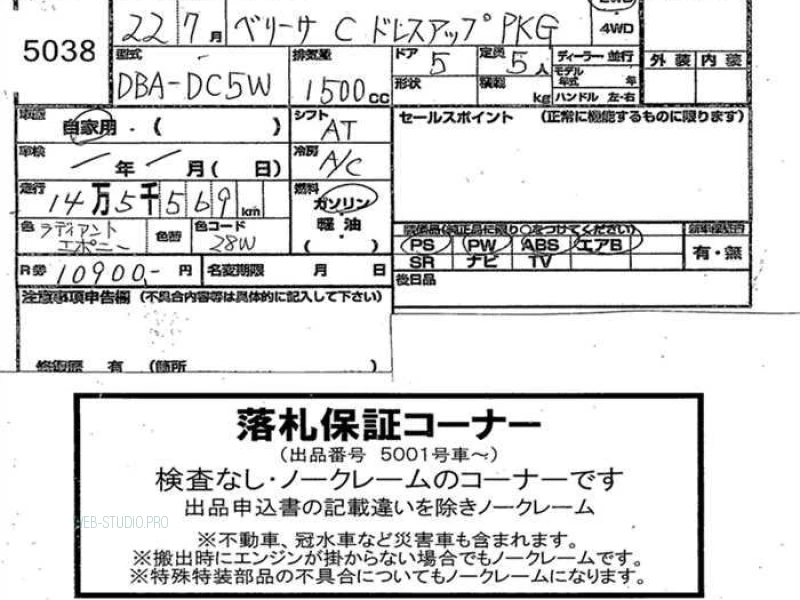 2WD
5038 22 7月 ベリーサ C ドレスアップPKG 4WD
型式 排気量 ドア 定員 ディーラー 並行 外装 内装
DBA-DC5W 1500cc 5 5人 モデル年式 年
形状 積載 kg ハンドル 左・右
車歴 自家用・( ) シフト AT セールスポイント (正常に機能するものに限ります)
車検 年 月( 日) 冷房 A/C
走行 14万5千569km 燃料 ガソリン
軽油
( )
色 ラディアントエボニー 色替 色コード 28W
装備品(純正品に限り○をつけてください)
PS PW ABS エアB 有・無
SR ナビ TV
R券 10900,- 円 名変期限 月 日 後日品
注意事項申告欄(不具合内容等は具体的に記入して下さい)
修復歴 有 (箇所 )
落札保証コーナー
(出品番号 5001号車~)
検査なし・ノークレームのコーナーです
出品申込書の記載違いを除きノークレーム
WEB-STUDIO.PRO
※不動車、冠水車など災害車も含まれます。
※搬出時にエンジンが掛からない場合でもノークレームです。
※特殊特装部品の不具合についてもノークレームになります。